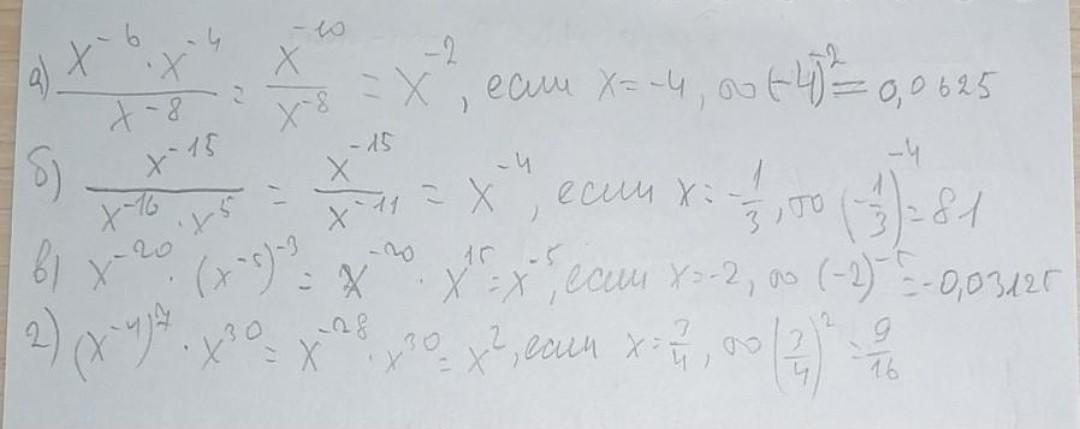 а) (x⁻⁶ · x⁻⁴)/x⁻⁸ = x⁻¹⁰/x⁻⁸ = x⁻², если x = -4, то (-4)⁻² = 0,0625
б) x⁻¹⁵/(x⁻¹⁶ · x⁵) = x⁻¹⁵/x⁻¹¹ = x⁻⁴, если x = -1/3, то (-1/3)⁻⁴ = 81
в) x⁻²⁰ · (x⁻⁵)⁻³ = x⁻²⁰ · x¹⁵ = x⁻⁵, если x = -2, то (-2)⁻⁵ = -0,03125
г) (x⁻⁴)⁷ · x³⁰ = x⁻²⁸ · x³⁰ = x², если x = 3/4, то (3/4)² = 9/16